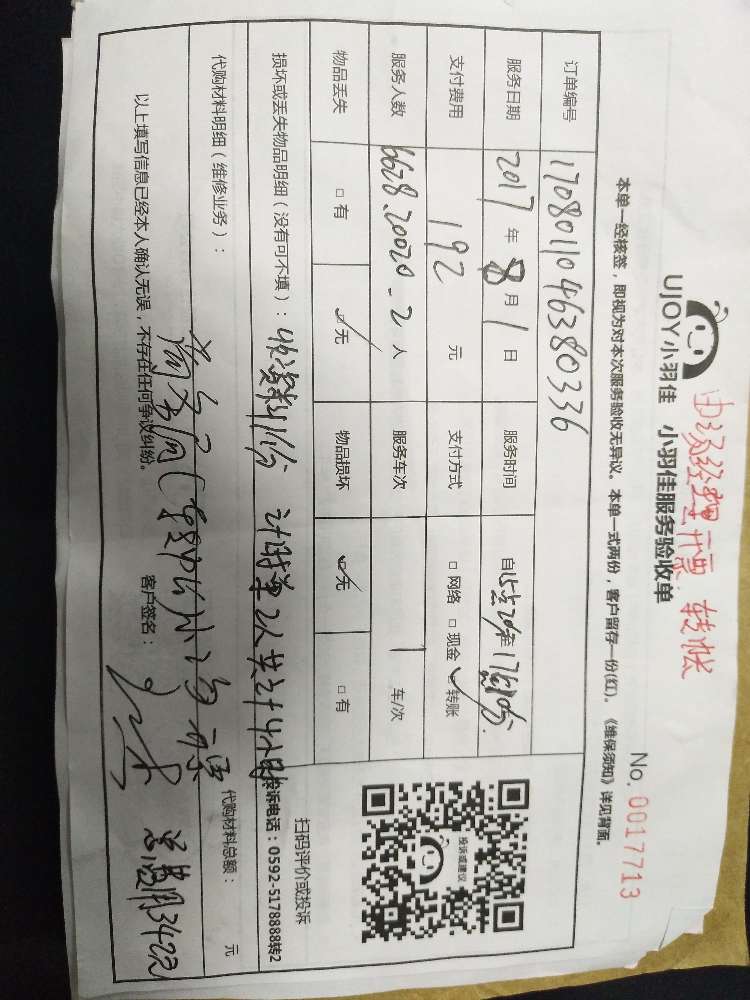 由汤经理开票 转帐
UJOY小羽佳 小羽佳服务验收单
No. 0017713
本单一经核签，即视为对本次服务验收无异议。本单一式两份，客户留存一份(红)。《维保须知》详见背面。
订单编号 1708011046380336
服务日期 2017年8月1日 服务时间
支付费用 192 元 支付方式 □网络 □现金 ☑转账
服务人数 6628.20020-2人 服务车次 1 车/次
物品丢失 □有 ☑无 物品损坏 ☑无 □有
扫码评价或投诉
投诉或建议
损坏或丢失物品明细（没有可不填）：
投诉电话：0592-5178888转2
代购材料明细（维修业务）： 代购材料总额： 元
以上填写信息已经本人确认无误，不存在任何争议纠纷。 客户签名：